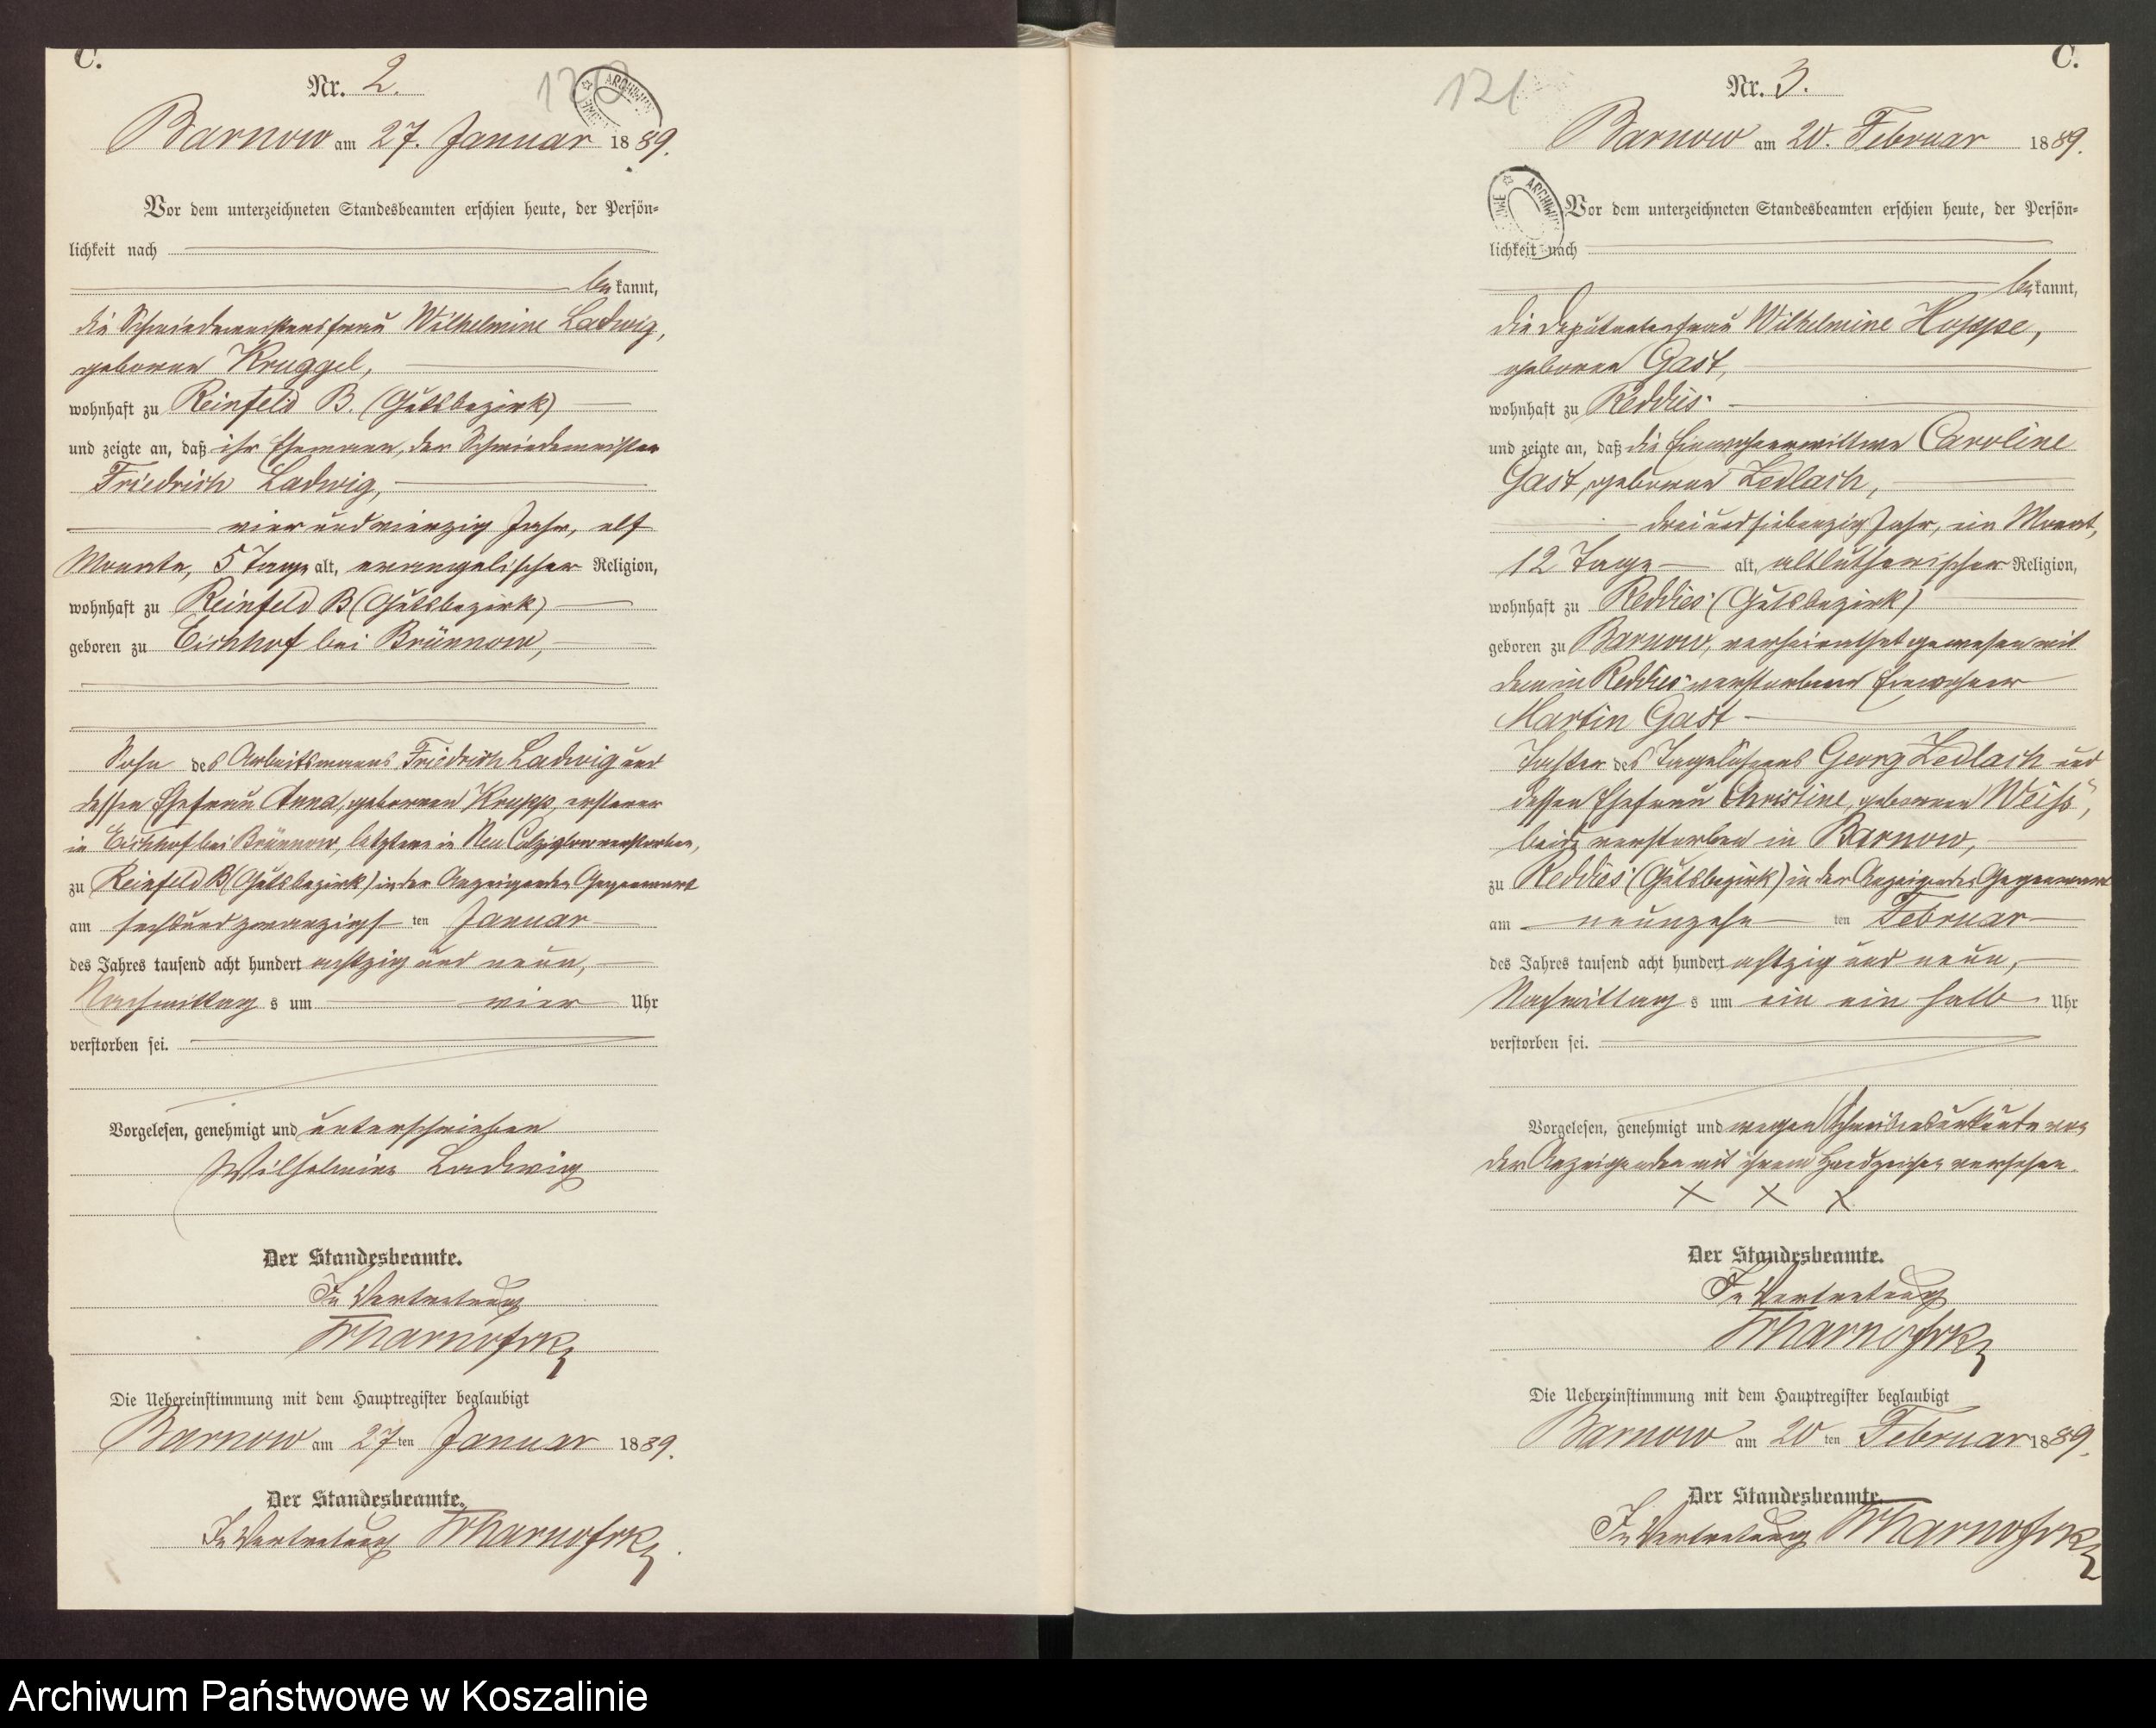 C.
Nr. 2.
120
ARCHIWUM
Barnow am 27. Januar 1889.
Vor dem unterzeichneten Standesbeamten erschien heute, der Persön-
lichkeit nach
bekannt,
die Schmiedemeistersfrau Wilhelmine Ladwig,
geborene Kruggel,
wohnhaft zu Reinfeld B. (Gutsbezirk)
und zeigte an, daß ihr Ehemann, der Schmiedemeister
Friedrich Ladwig,
vier und vierzig Jahr, elf
Monate, 5 Tage alt, evangelischer Religion,
wohnhaft zu Reinfeld B (Gutsbezirk)
geboren zu Eichhof bei Brünnow,
Sohn des Arbeitsmanns Friedrich Ladwig und
dessen Ehefrau Anna, geborenen Krupp, ersterer
in Eichhof bei Brünnow, letztere in Neu Colziglow verstorben,
zu Reinfeld B (Gutsbezirk) in der Anzeigenden Gegenwart
am sechsundzwanzigsten Januar
des Jahres tausend acht hundert achtzig und neun,
Nachmittags um vier Uhr
verstorben sei.
Vorgelesen, genehmigt und unterschrieben
Wilhelmine Ladwig
Der Standesbeamte.
In Vertretung
Die Uebereinstimmung mit dem Hauptregister beglaubigt
Barnow am 27ten Januar 1889.
Der Standesbeamte.
In Vertretung
C.
Nr. 3.
121
Barnow am 20. Februar 1889.
ARCHIWUM
Vor dem unterzeichneten Standesbeamten erschien heute, der Persön-
lichkeit nach
bekannt,
die Deputantenfrau Wilhelmine Hoppe,
geborene Gast,
wohnhaft zu Reddies
und zeigte an, daß die Einwohnerwittwe Caroline
Gast, geborene Zedlach,
dreiundsiebenzig Jahr, ein Monat,
12 Tage alt, altlutherischer Religion,
wohnhaft zu Reddies (Gutsbezirk)
geboren zu Barnow, verheirathet gewesen mit
dem in Reddies verstorbenen Einwohner
Martin Gast
Tochter des Tagelöhners Georg Zedlach und
dessen Ehefrau Christine, geborenen Weiß,
beide verstorben in Barnow,
zu Reddies (Gutsbezirk) in der Anzeigenden Gegenwart
am neunzehnten Februar
des Jahres tausend acht hundert achtzig und neun,
Nachmittags um ein ein halb Uhr
verstorben sei.
Vorgelesen, genehmigt und wegen Schreibensunkunde von
der Anzeigenden mit ihrem Handzeichen versehen
X X X
Der Standesbeamte.
In Vertretung
Die Uebereinstimmung mit dem Hauptregister beglaubigt
Barnow am 20ten Februar 1889.
Der Standesbeamte.
In Vertretung
Archiwum Państwowe w Koszalinie